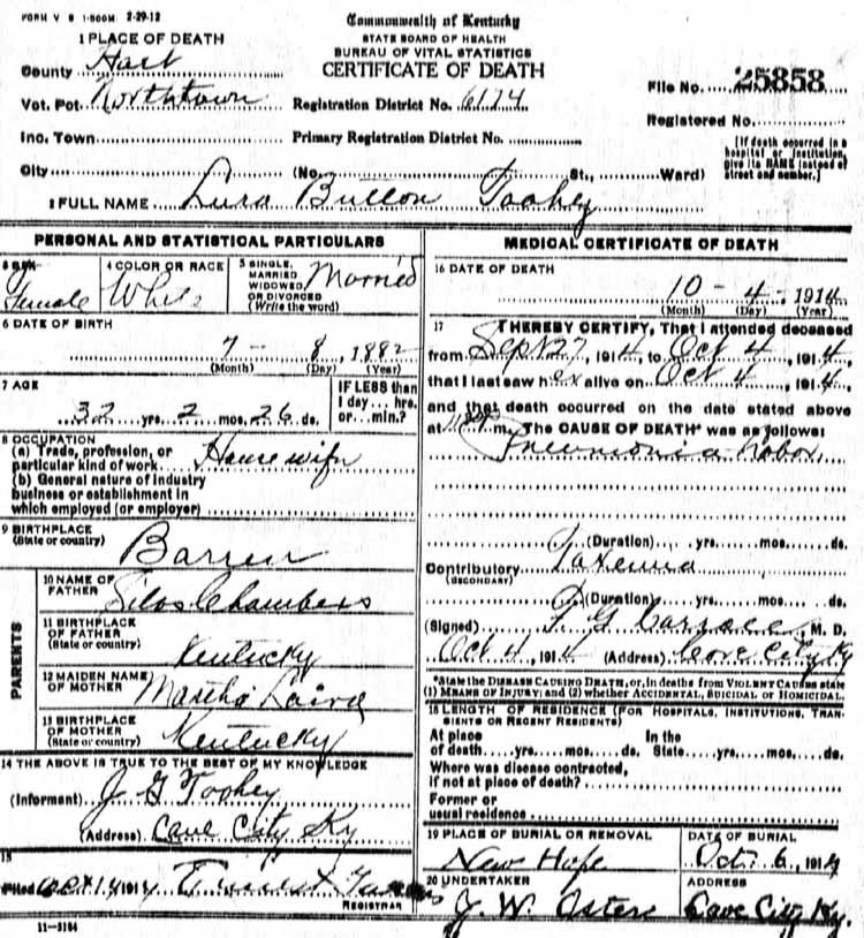 FORM V S 1-500M 2-29-12
Commonwealth of Kentucky
STATE BOARD OF HEALTH
BUREAU OF VITAL STATISTICS
CERTIFICATE OF DEATH
1 PLACE OF DEATH
County Hart
Vot. Pct. Northtown
Registration District No. 6174
File No. 25858
Registered No.
Inc. Town
Primary Registration District No.
[If death occurred in a hospital or institution, give its NAME instead of street and number.]
City (No. St., Ward)
2 FULL NAME Lura Toohey
PERSONAL AND STATISTICAL PARTICULARS
3 SEX Female
4 COLOR OR RACE White
5 SINGLE, MARRIED WIDOWED, OR DIVORCED (Write the word) Married
6 DATE OF BIRTH
7 - 8, 1882
(Month) (Day) (Year)
7 AGE
32 yrs. 2 mos. 26 ds.
IF LESS than 1 day... hrs. or... min.?
8 OCCUPATION
(a) Trade, profession, or particular kind of work House wife
(b) General nature of industry business or establishment in which employed (or employer)
9 BIRTHPLACE (State or country) Barren
PARENTS
10 NAME OF FATHER Silas Chambers
11 BIRTHPLACE OF FATHER (State or country) Kentucky
12 MAIDEN NAME OF MOTHER Martha Laird
13 BIRTHPLACE OF MOTHER (State or country) Kentucky
14 THE ABOVE IS TRUE TO THE BEST OF MY KNOWLEDGE
(Informant) J G Toohey
(Address) Cave City Ky
15
Filed 1914 Ernest
REGISTRAR
11-3184
MEDICAL CERTIFICATE OF DEATH
16 DATE OF DEATH
10 - 4, 1914
(Month) (Day) (Year)
17 I HEREBY CERTIFY, That I attended deceased
from Sept 27, 1914, to Oct 4, 1914,
that I last saw her alive on Oct 4, 1914,
and that death occurred on the date stated above
at m. The CAUSE OF DEATH* was as follows:
Pneumonia Lobar
(Duration) yrs. mos. ds.
Contributory (SECONDARY) Toxemia
(Duration) yrs. mos. ds.
(Signed) G , M. D.
Oct 4, 1914 (Address) Cave City Ky
*State the DISEASE CAUSING DEATH, or, in deaths from VIOLENT CAUSES state
(1) MEANS OF INJURY; and (2) whether ACCIDENTAL, SUICIDAL or HOMICIDAL.
18 LENGTH OF RESIDENCE (FOR HOSPITALS, INSTITUTIONS, TRANSIENTS OR RECENT RESIDENTS)
At place of death yrs. mos. ds.
In the State yrs. mos. ds.
Where was disease contracted, if not at place of death?
Former or usual residence
19 PLACE OF BURIAL OR REMOVAL
New Hope
DATE OF BURIAL
Oct 6, 1914
20 UNDERTAKER
J. W.
ADDRESS
Cave City Ky.